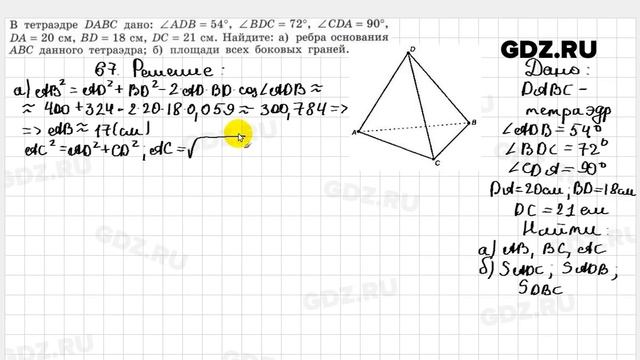 В тетраэдре DABC дано: ∠ADB = 54°, ∠BDC = 72°, ∠CDA = 90°,
DA = 20 см, BD = 18 см, DC = 21 см. Найдите: а) ребра основания
ABC данного тетраэдра; б) площади всех боковых граней.
67. Решение:
а) AB² = AD² + BD² - 2·AD·BD·cos∠ADB ≈
≈ 400 + 324 - 2·20·18·0,059 ≈ 300,784 =>
=> AB ≈ 17 (см)
AC² = AD² + CD²; AC = √
D
A
B
C
GDZ.RU
Дано:
DABC -
тетраэдр
∠ADB = 54°
∠BDC = 72°
∠CDA = 90°
DA = 20см; BD = 18см
DC = 21 см
Найти:
а) AB, BC, AC
б) SADC; SADB;
SDBC
GDZ.RU
GDZ.RU
GDZ.RU
GDZ.RU
GDZ.RU